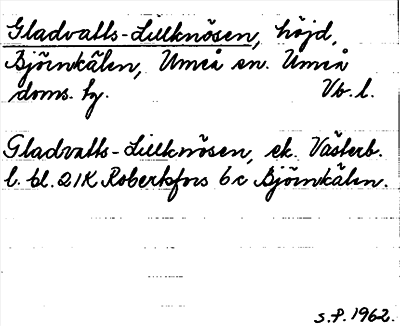 Gladvatts-Lillknösen, höjd,
Björnkälen, Umeå sn. Umeå
doms. hg. Vb. l.
Gladvatts-Lillknösen, ek. Västerb.
l. bl. 21K Robertsfors 6c Björnkälen.
S.P. 1962.